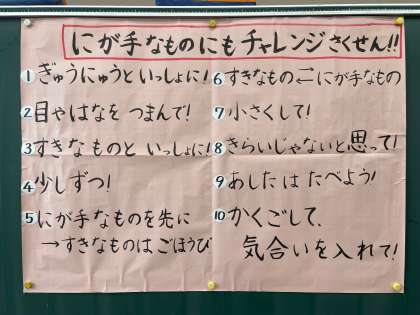 にが手なものにもチャレンジさくせん!!
1 ぎゅうにゅうと いっしょに!
2 目やはなを つまんで!
3 すきなものと いっしょに!
4 少しずつ!
5 にが手なものを先に
→すきなものは ごほうび
6 すきなもの⇄にが手なもの
7 小さくして!
8 きらいじゃないと思って!
9 あしたは たべよう!
10 かくごして、
気合いを入れて!